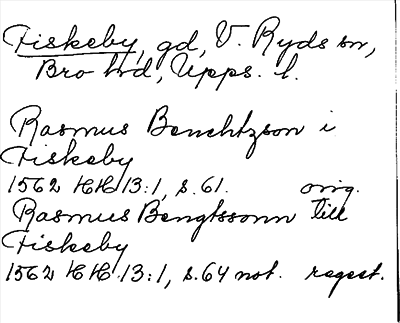 Fiskeby, gd, V. Ryds sn,
Bro hd, Upps. l.
Rasmus Benchtzson i
Fiskeby
1562 HH 13:1, s. 61. orig.
Rasmus Bengtssonn till
Fiskeby
1562 HH. 13:1, s. 64 not. regest.